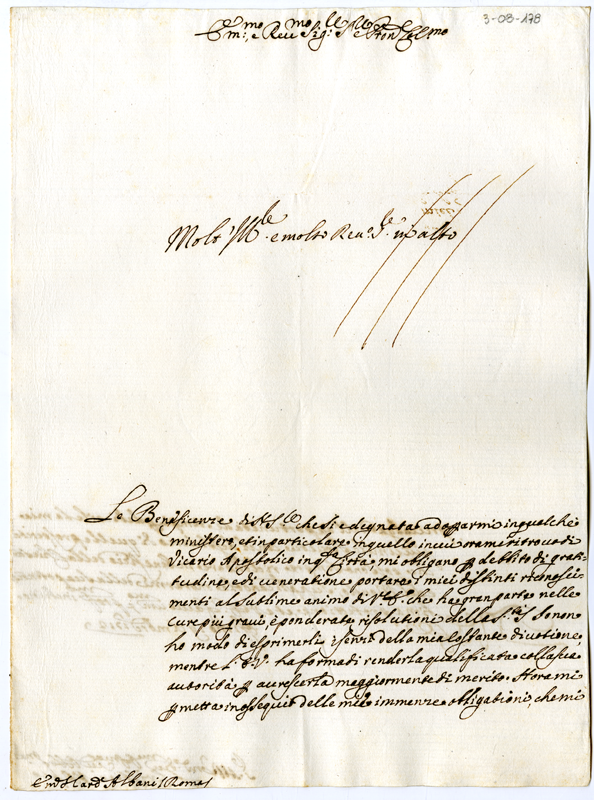 3-08-178
Em.mo e Rev.mo Sig.
Molt' Ill.e e molto Rev. in alto
Le Beneficenze di N. S.re che si è degnata adoprarmi in qualche
ministero, et in particolare in quello in cui ora mi ritrovo di
Vicario Apostolico in q.sta Città, mi obligano p debbito di grati
tudine, e di veneratione portare i miei distinti riconosci
menti al sublime animo di V. E. che ha gran parte nelle
cure più gravi, e ponderate risolutioni della S.
ho modo di esprimerli i sensi della mia costante divotione,
mentre l'E. V. ha forma di renderla qualificata colla sua
autorità p accrescerla maggiormente di merito. Hora mi
p metta in ossequio delle mie immenze obligationi, che mi
Em. S. Card. Albani Roma